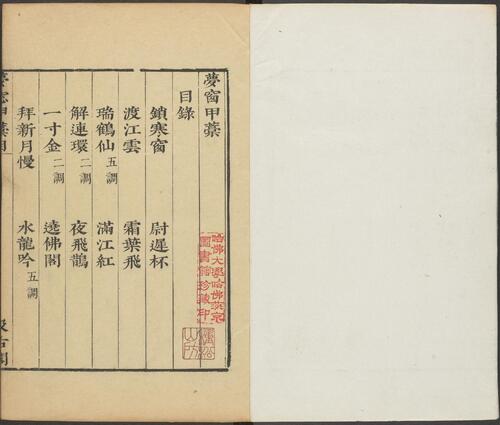 夢窗甲藁
目錄
鎖寒窗 尉遲杯
渡江雲 霜葉飛
瑞鶴仙 五調 滿江紅
解連環 二調 夜飛鵲
一寸金 二調 遶佛閣
拜新月慢 水龍吟 五調
哈佛大學哈佛燕京
圖書館珍藏印